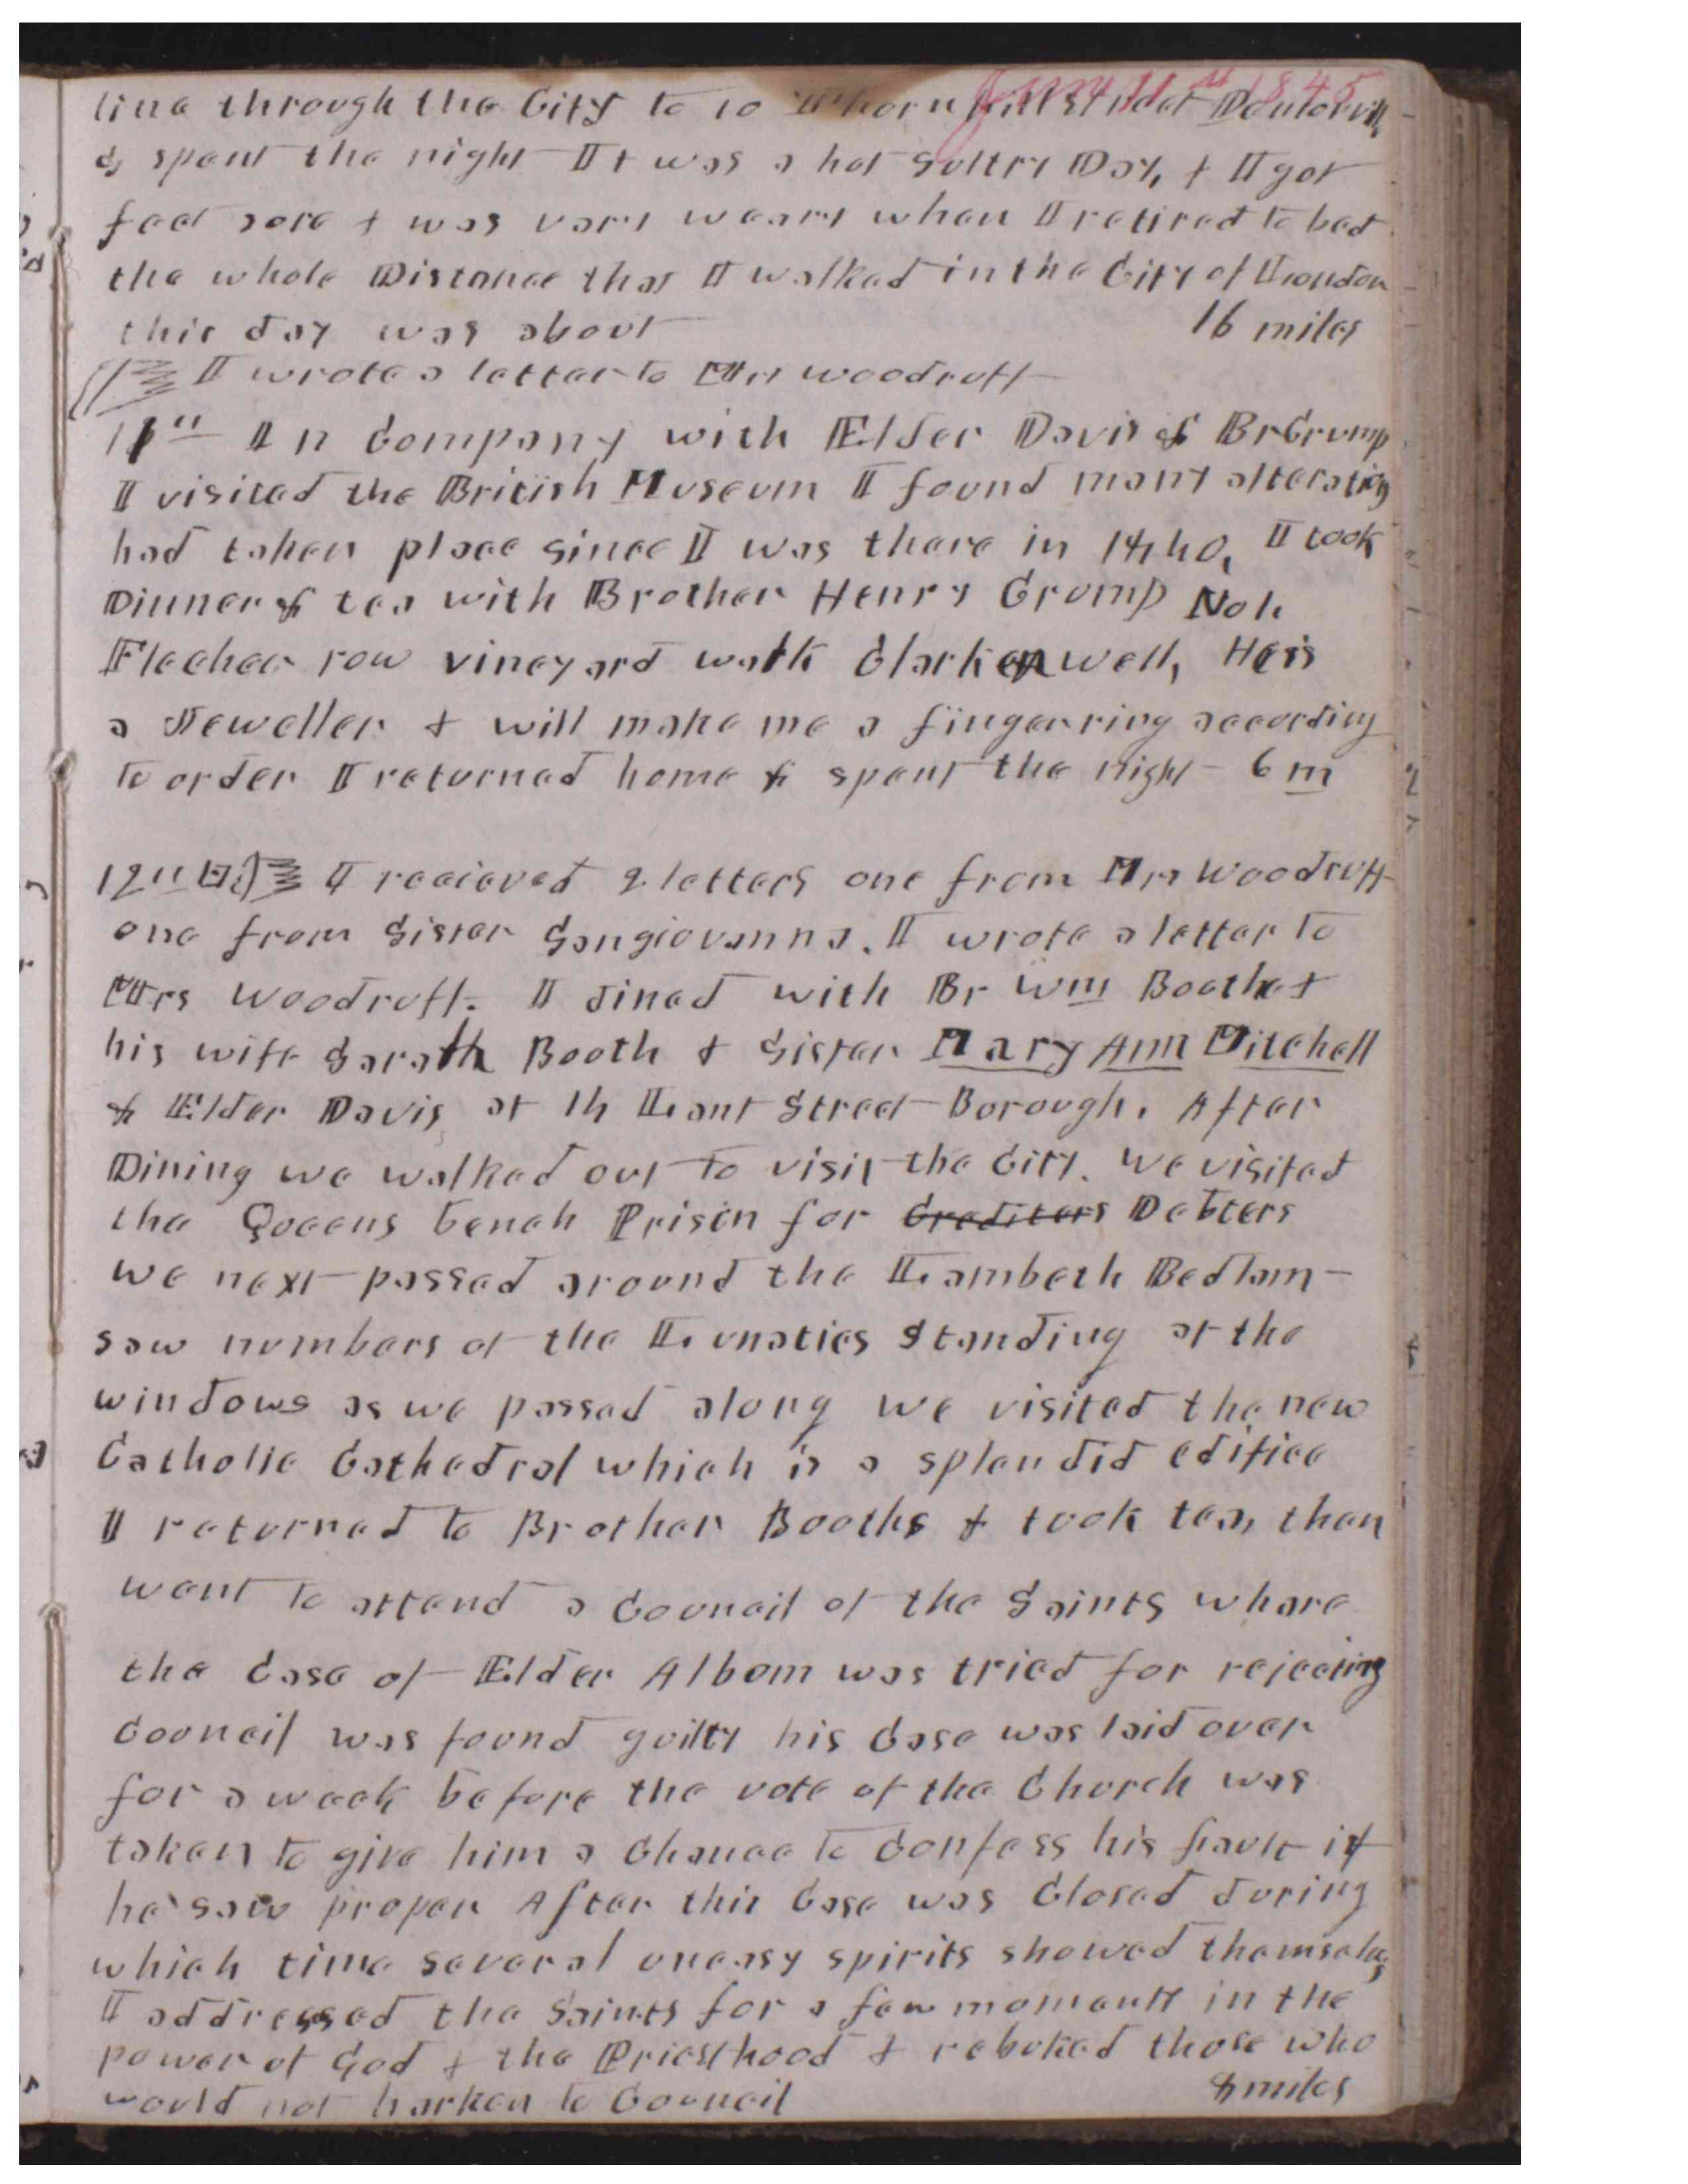 June 11th 1845
line through the City to 10 Thorn hill Street Pentonvill
& spent the night It was a hot Sultry Day, & I got
feet sore & was very weary when I retired to bed
the whole Distance that I walked in the City of London
this day was about 16 miles
I wrote a letter to Mrs Woodruff
11th In Company with Elder Davis & Br Crump
I visited the British Museum I found many alterations
had taken place since I was there in 1840, I took
Dinner & tea with Brother Henry Crump No 4
Fleecher row vineyard walk Clarkenwell, He is
a Jeweller & will make me a finger ring according
to order I returned home & spent the night 6 m
12th I recieved 2 letters one from Mrs Woodruff
one from Sister Sangiovanna. I wrote a letter to
Mrs Woodruff. I dined with Br Wm Booth &
his wife Sarah Booth & Sister Mary Ann Mitchell
& Elder Davis at 14 Lant Street Borough. After
Dining we walked out to visit the City. We visited
the Queens bench Prison for Creditors Debters
we next passed around the Lambeth Bedlam
saw numbers of the Lunatics Standing at the
windows as we passed along we visited the new
Catholic Cathedral which is a splendid edifice
I returned to Brother Booths & took tea, then
went to attend a Council of the Saints where
the Case of Elder Albom was tried for rejecting
Council was found guilty his Case was laid over
for a week before the vote of the Church was
taken to give him a Chance to Confess his fault if
he saw proper After this Case was Closed during
which time several uneasy spirits showed themselves
I addressed the Saints for a few moments in the
power of God & the Priesthood & rebuked those who
would not harken to Council 8 miles